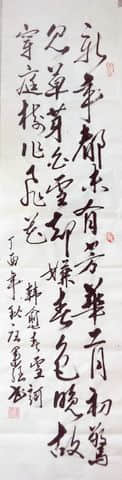 新年都未有芳華二月初驚
見草芽白雪却嫌春色晚故
穿庭樹作飛花 韓愈春雪詞
丁酉年秋 書